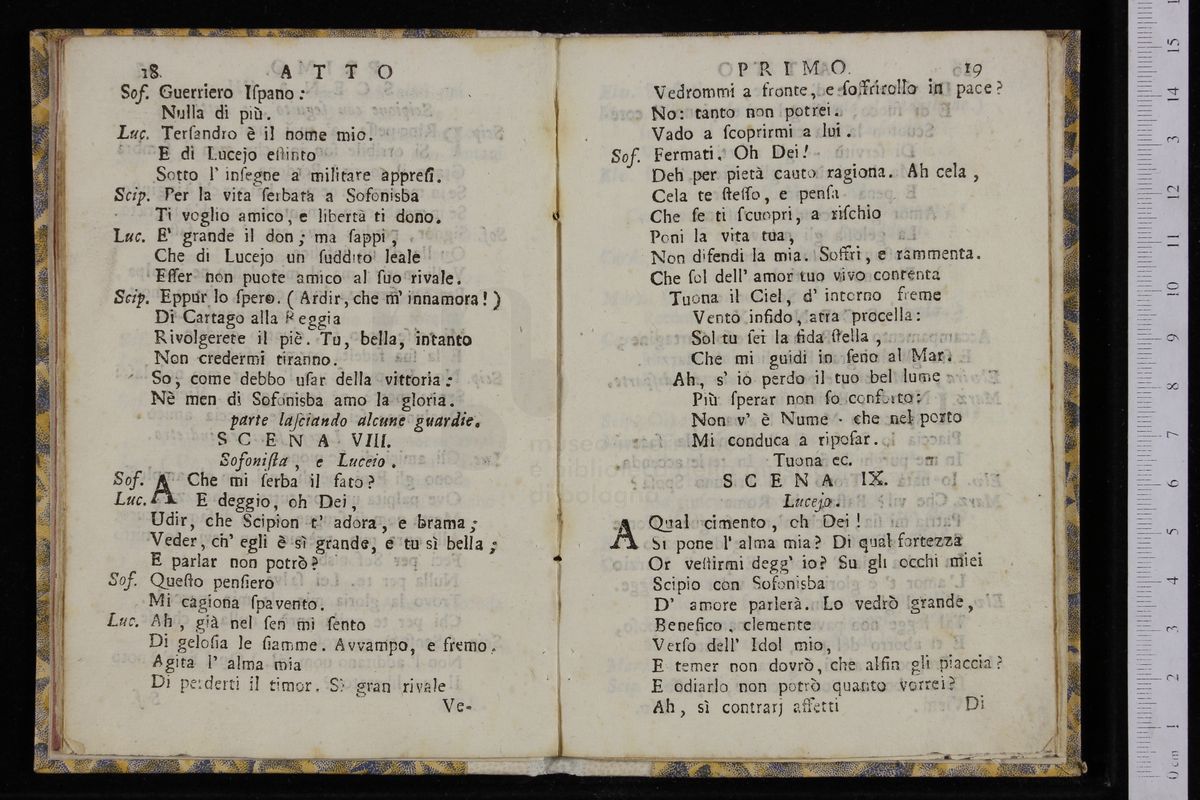 18 ATTO
Sof. Guerriero Iſpano:
Nulla di più.
Luc. Terſandro è il nome mio.
E di Lucejo eſtinto
Sotto l' inſegne a militare appreſi.
Scip. Per la vita ſerbata a Sofonisba
Ti voglio amico, e libertà ti dono.
Luc. E' grande il don; ma ſappi,
Che di Lucejo un ſuddito leale
Eſſer non puote amico al ſuo rivale.
Scip. Eppur lo ſpero. ( Ardir, che m' innamora! )
Di Cartago alla Reggia
Rivolgerete il piè. Tu, bella, intanto
Non credermi tiranno.
So, come debbo uſar della vittoria:
Nè men di Sofonisba amo la gloria.
parte laſciando alcune guardie.
SCENA VIII.
Sofoniſta, e Luceio.
Sof. A Che mi ſerba il fato?
Luc. E deggio, oh Dei,
Udir, che Scipion t' adora, e brama;
Veder, ch' egli è sì grande, e tu sì bella;
E parlar non potrò?
Sof. Queſto penſiero
Mi cagiona ſpavento.
Luc. Ah, già nel ſen mi ſento
Di geloſia le fiamme. Avvampo, e fremo.
Agita l' alma mia
Di perderti il timor. Sì gran rivale
Ve-
PRIMO. 19
Vedrommi a fronte, e ſoffrirollo in pace?
No: tanto non potrei.
Vado a ſcoprirmi a lui.
Sof. Fermati. Oh Dei!
Deh per pietà cauto ragiona. Ah cela,
Cela te ſteſſo, e penſa
Che ſe ti ſcuopri, a riſchio
Poni la vita tua,
Non difendi la mia. Soffri, e rammenta.
Che ſol dell' amor tuo vivo contenta
Tuona il Ciel, d' intorno freme
Vento infido, atra procella:
Sol tu ſei la fida ſtella,
Che mi guidi in ſeno al Mar.
Ah, s' io perdo il tuo bel lume
Più ſperar non ſo conforto:
Non v' è Nume che nel porto
Mi conduca a ripoſar.
Tuona ec.
SCENA IX.
Lucejo.
A Qual cimento, oh Dei!
Si pone l' alma mia? Di qual fortezza
Or veſtirmi degg' io? Su gli occhi miei
Scipio con Sofonisba
D' amore parlerà. Lo vedrò grande,
Benefico, clemente
Verſo dell' Idol mio,
E temer non dovrò, che alfin gli piaccia?
E odiarlo non potrò quanto vorrei?
Ah, sì contrarj affetti
Di